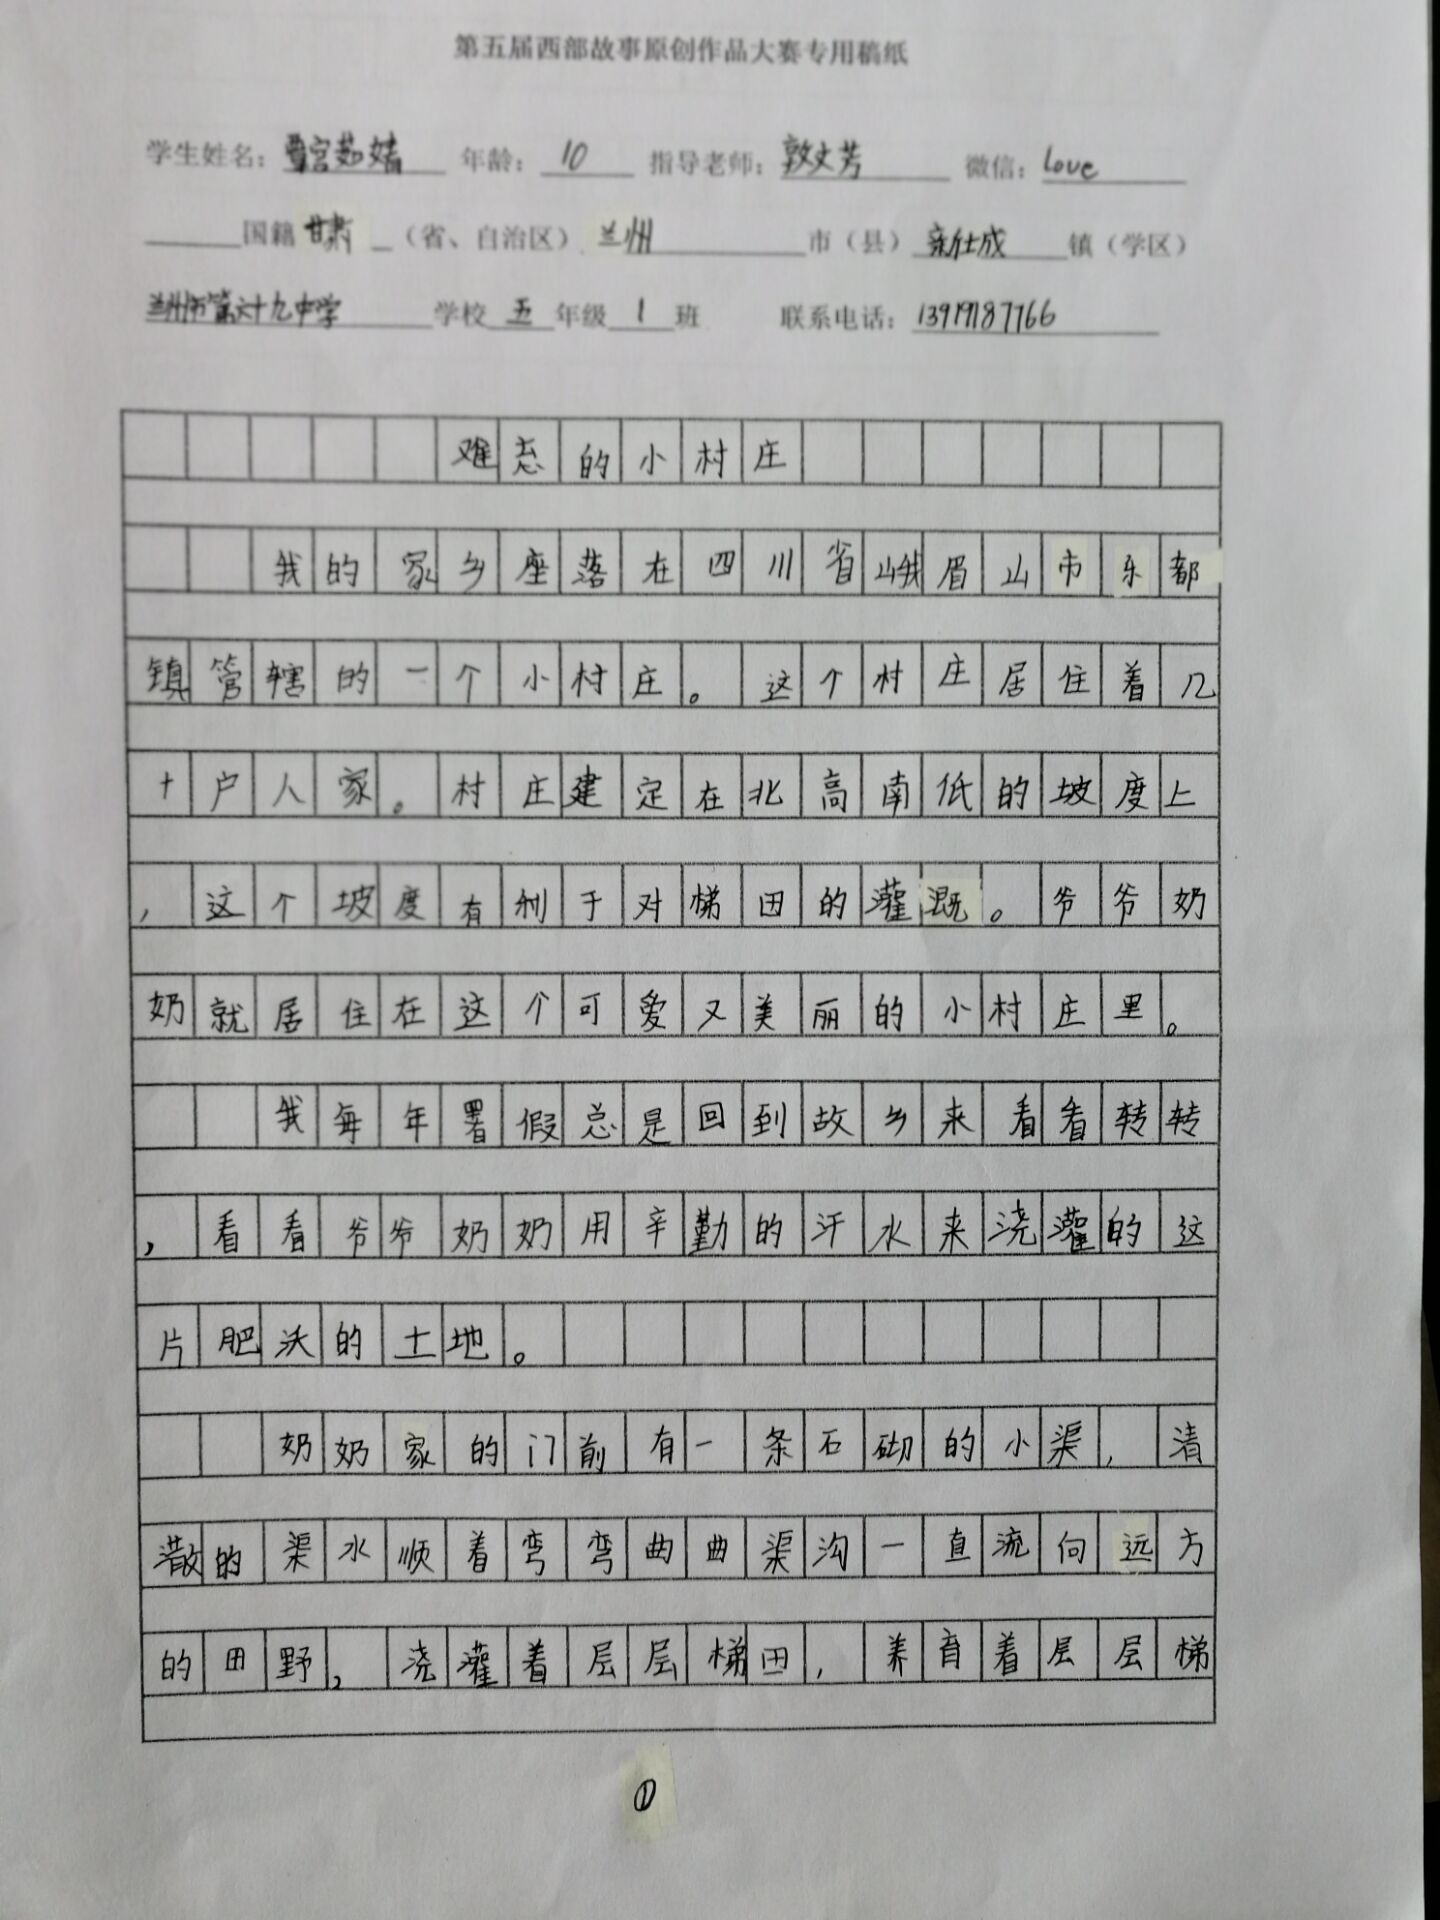 第五届西部故事原创作品大赛专用稿纸
学生姓名：宫茹婧 年龄：10 指导老师：敦文芳 微信：love
国籍 甘肃（省、自治区）兰州 市（县） 镇（学区）
兰州市第六十九中学 学校 五 年级 1 班 联系电话：13919187766
难忘的小村庄
我的家乡座落在四川省峨眉山市乐都
镇管辖的一个小村庄。这个村庄居住着几
十户人家。村庄建定在北高南低的坡度上
，这个坡度有利于对梯田的灌溉。爷爷奶
奶就居住在这个可爱又美丽的小村庄里。
我每年署假总是回到故乡来看看转转
，看看爷爷奶奶用辛勤的汗水来浇灌的这
片肥沃的土地。
奶奶家的门前有一条石砌的小渠，清
澈的渠水顺着弯弯曲曲渠沟一直流向远方
的田野，浇灌着层层梯田，养育着层层梯
①